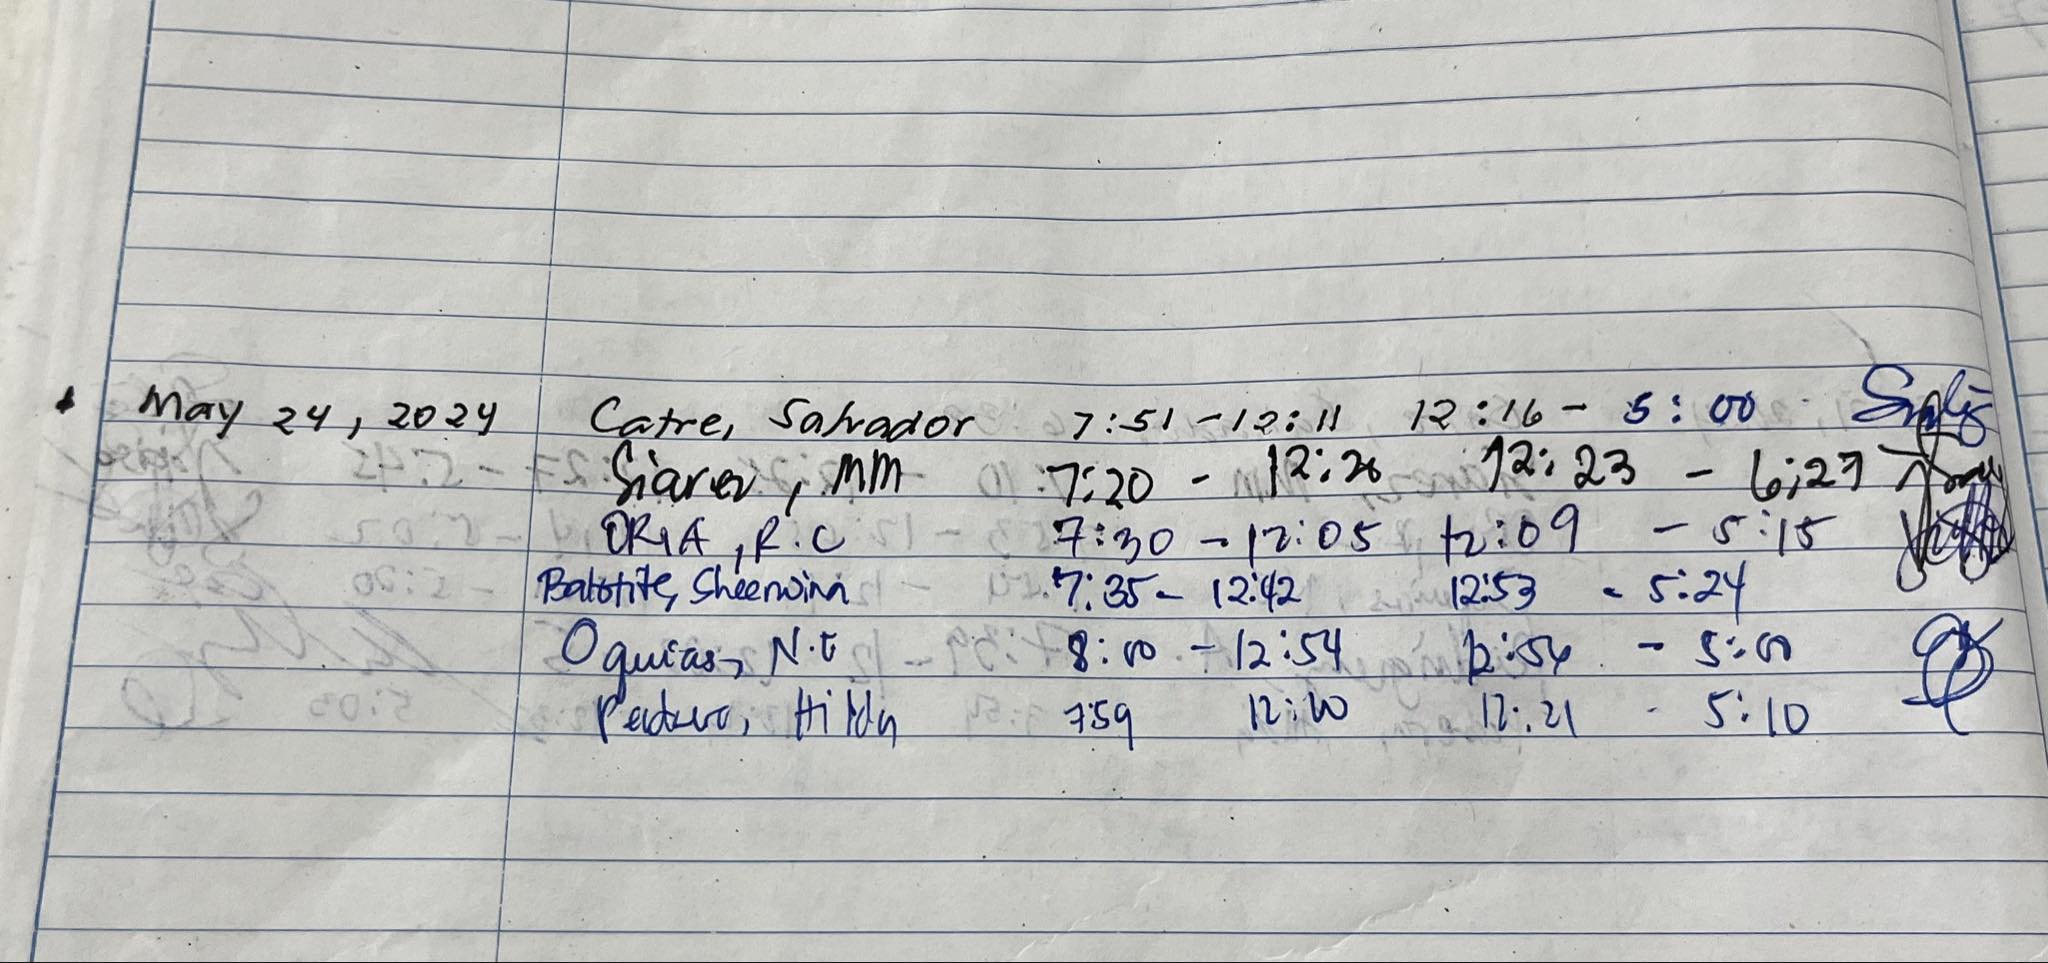 May 24, 2024 Catre, Salvador 7:51 - 12:11 12:16 - 5:00
Siarez, MM 7:20 - 12:20 12:23 - 6:27
ORIA, R.C 7:30 - 12:05 12:09 - 5:15
Batotite, Sheenwinn 7:35 - 12:42 12:53 - 5:24
Oguias, N.E 8:00 - 12:54 12:56 - 5:00
Hilda 7:59 12:20 12:21 - 5:10